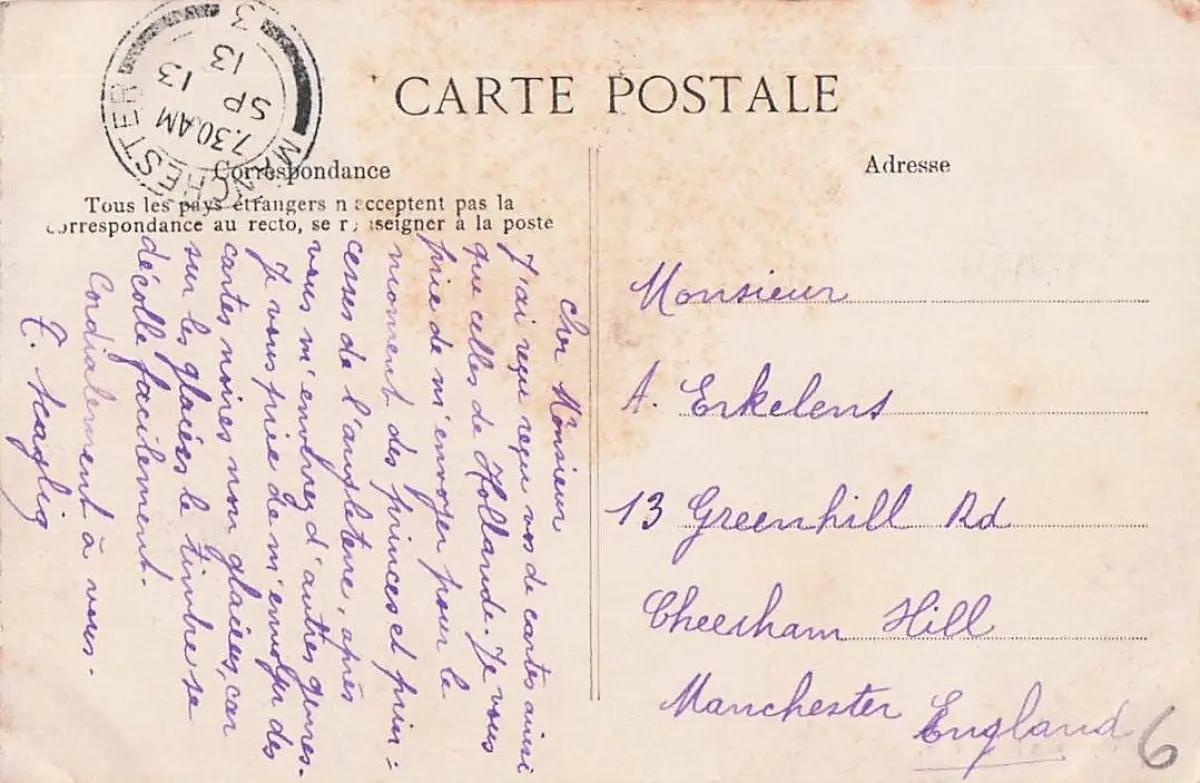 CARTE POSTALE
MANCHESTER 3
7.30 AM
13
SP
13
Correspondance
Adresse
Tous les pays étrangers n'acceptent pas la
correspondance au recto, se renseigner à la poste
Cher Monsieur
J'ai reçu reçu vos de cartes ainsi
que celles de Hollande. Je vous
prie de m'envoyer pour le
moment des princes et prin=
cesses de l'angleterre, après
vous m'enverrez d'autres genres.
Je vous prie de m'envoyer des
cartes noires non glacées, car
sur les glacées le timbre se
décolle facilement.
Cordialement à vous.
Monsieur
A. Erkelens
13 Greenhill Rd
Cheesham Hill
Manchester England
6